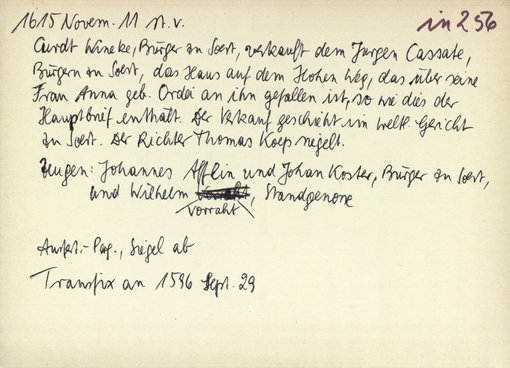 1615 Novem. 11 st. v.
in 256
Curdt Wineke, Bürger zu Soest, verkauft dem Jurgen Cassate,
Bürgern zu Soest, das Haus auf dem Hohen Weg, das über seine
Frau Anna geb. Ordei an ihn gefallen ist, so wie dies der
Hauptbrief enthält. Der Verkauf geschieht im weltl. Gericht
zu Soest. Der Richter Thomas Koep siegelt.
Zeugen: Johannes Afflin und Johan Koster, Bürger zu Soest,
und Wilhelm Vorraht, Standgenose
Ausfert.-Perg., Siegel ab
Transfix an 1596 Sept. 29